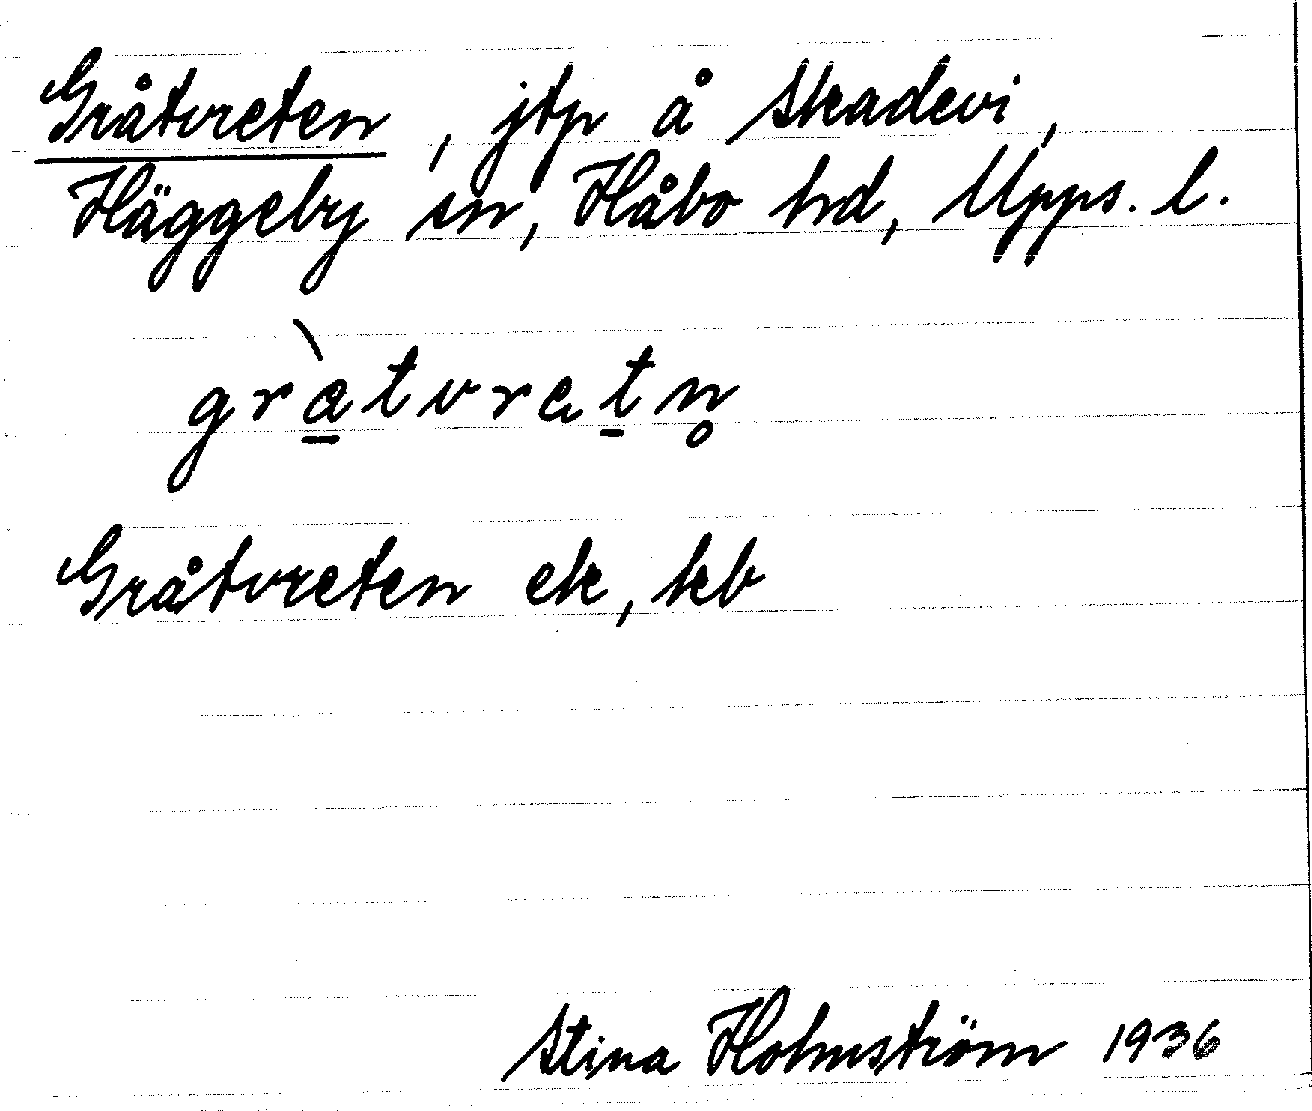 Gråtvreten, jtp å Skadevi,
Häggeby sn, Håbo hd, Upps. l.
gràtvretn̥
Gråtvreten ek, kb
Stina Holmström 1936